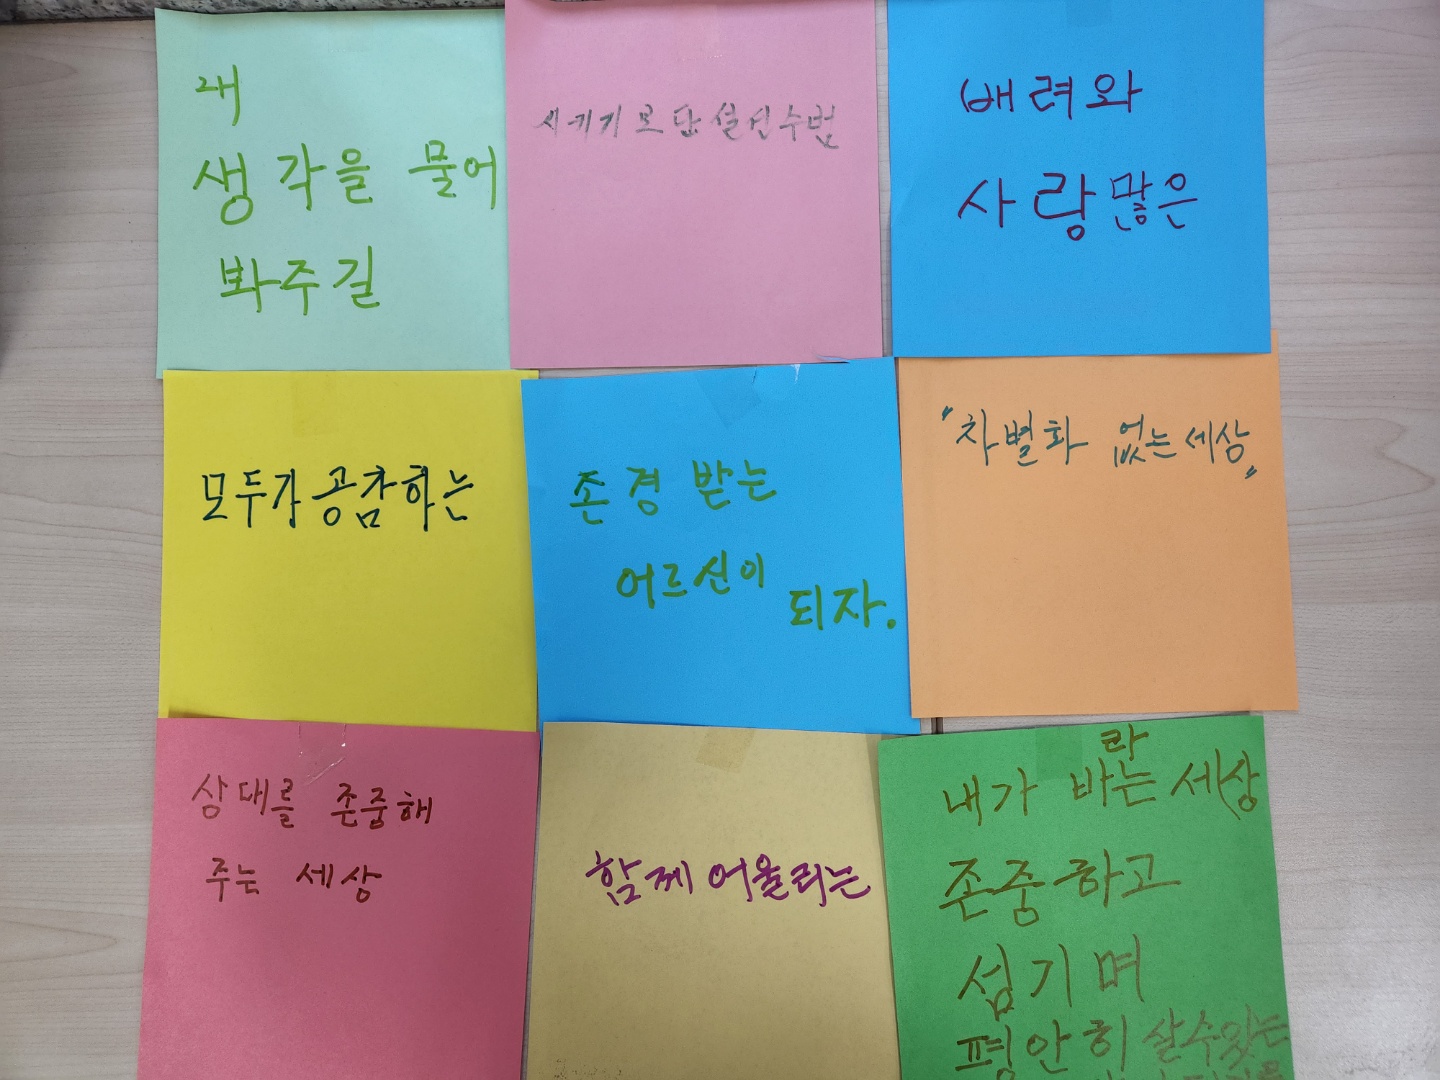 내
생각을 물어
봐주길
배려와
사랑많은
모두가공감하는
존경 받는
어르신이
되자.
"차별화 없는세상"
상대를 존중해
주는 세상
함께어울리는
내가 바라는 세상
존중하고
섬기며
평안히 살수있는